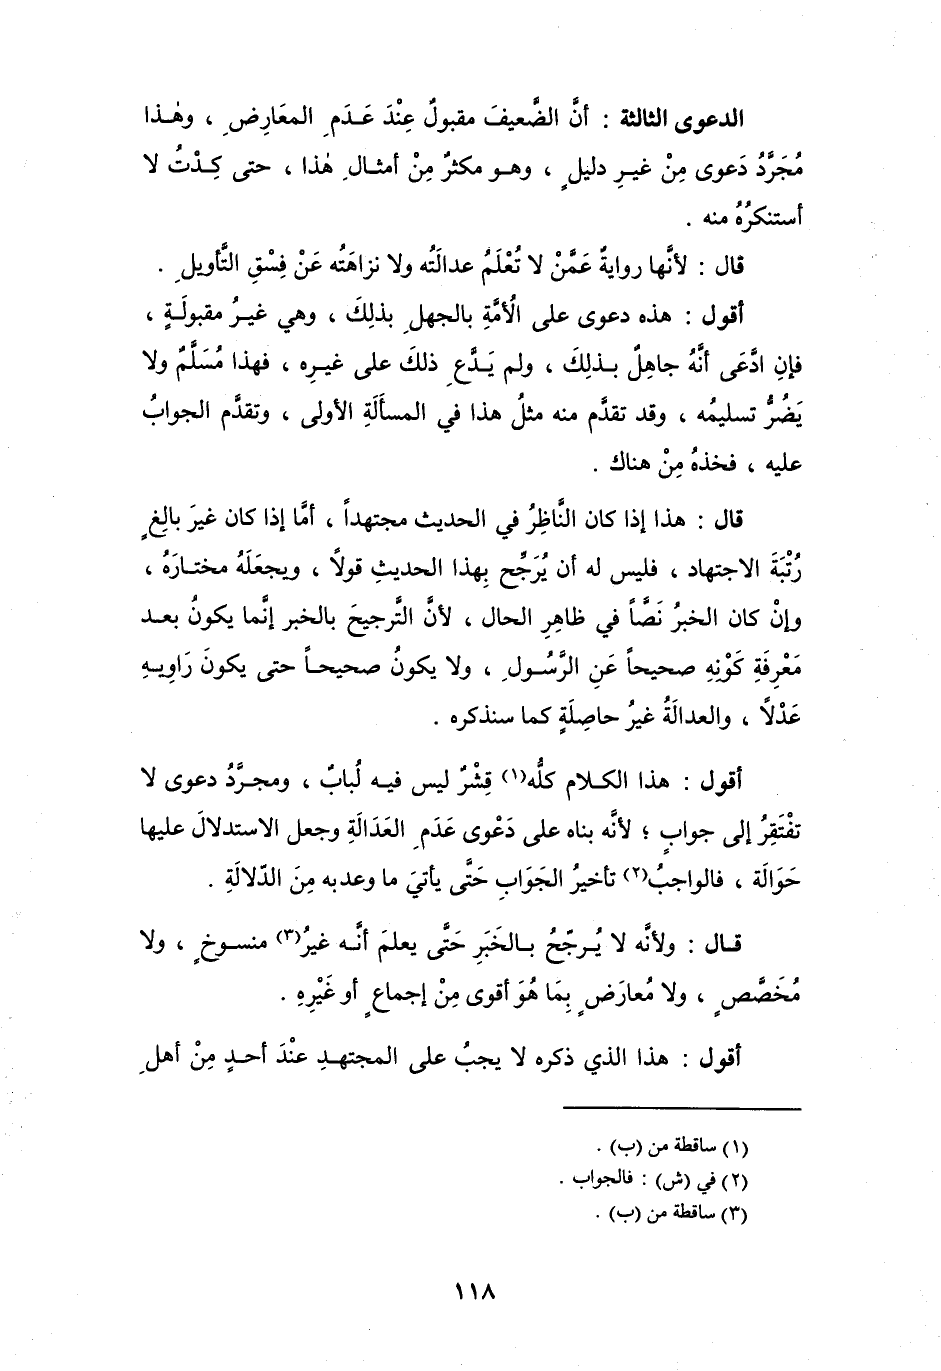 الدعوى الثالثة : أنَّ الضَّعيفَ مقبولٌ عِنْدَ عَدَمِ المعَارِضِ ، وهٰذا
مُجَرَّدُ دَعوى مِنْ غيرِ دليلٍ ، وهو مكثرٌ مِنْ أمثالِ هٰذا ، حتى كِدْتُ لا
أستنكرُهُ منه .
قال : لأنَّها روايةٌ عَمَّنْ لا تُعْلَمُ عدالَتُه ولا نزاهَتُه عَنْ فِسْقِ التَّأويلِ .
أقول : هذه دعوى على الأمَّةِ بالجهلِ بذلِكَ ، وهي غيرُ مقبولَةٍ ،
فإنِ ادَّعَى أنَّهُ جاهِلٌ بذلِكَ ، ولم يَدَّعِ ذلكَ على غيرِه ، فهذا مُسَلَّمٌ ولا
يَضُرُّ تسليمُه ، وقد تقدَّم منه مثلُ هذا في المسأَلَةِ الأولى ، وتقدَّم الجوابُ
عليه ، فخذهُ مِنْ هناك .
قال : هذا إذا كان النَّاظِرُ في الحديث مجتهداً ، أمَّا إذا كان غيرَ بالِغٍ
رُتْبَةَ الاجتهاد ، فليس له أن يُرَجِّح بِهذا الحديثِ قولاً ، ويجعَلَهُ مختارَهُ ،
وإنْ كان الخبرُ نَصَّاً في ظاهِرِ الحال ، لأنَّ التَّرجيحَ بالخبر إنَّما يكونُ بعد
مَعْرِفَةِ كَوْنِهِ صحيحاً عَنِ الرَّسُولِ ، ولا يكونُ صحيحاً حتى يكونَ رَاوِيهِ
عَدْلاً ، والعدالَةُ غيرُ حاصِلَةٍ كما سنذكره .
أقول : هذا الكلام كلُّه(١) قِشْرٌ ليس فيه لُبابٌ ، ومجرَّدُ دعوى لا
تفْتَقِرُ إلى جوابٍ ؛ لأنَّه بناه على دَعْوى عَدَمِ العَدَالَةِ وجعل الاستدلالَ عليها
حَوَالَة ، فالواجبُ(٢) تأخيرُ الجَوَابِ حَتَّى يأتيَ ما وعد به مِنَ الدّلالَةِ .
قال : ولأنَّه لا يُرجّحُ بالخَبَرِ حَتَّى يعلمَ أنَّه غيرُ(٣) منسوخٍ ، ولا
مُخَصَّصٍ ، ولا مُعارَضٍ بِمَا هُوَ أقوى مِنْ إجماعٍ أو غَيْرِهِ .
أقول : هذا الذي ذكره لا يجبُ على المجتهدِ عنْدَ أحدٍ مِنْ أهلِ
(١) ساقطة من (ب) .
(٢) في (ش) : فالجواب .
(٣) ساقطة من (ب) .
١١٨